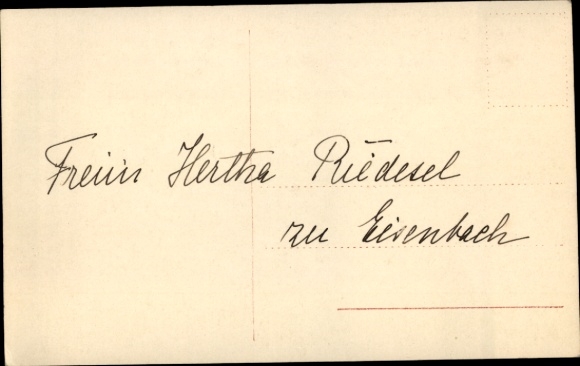 Freiin Hertha Riedesel
zu Eisenbach